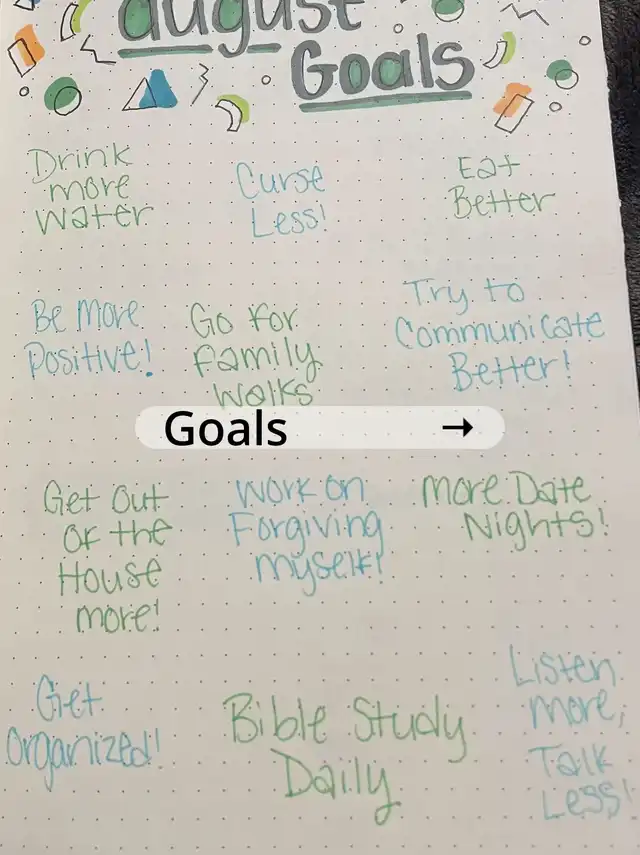 august
Goals
Drink
more
Water
Curse
Less!
Eat
Better
Be More
Positive!
Go For
Family
Walks
Try to
Communicate
Better!
Goals →
Get Out
Of the
House
more!
Work on
Forgiving
myself!
More Date
Nights!
Get
Organized!
Bible Study
Daily
Listen
more,
Talk
Less!